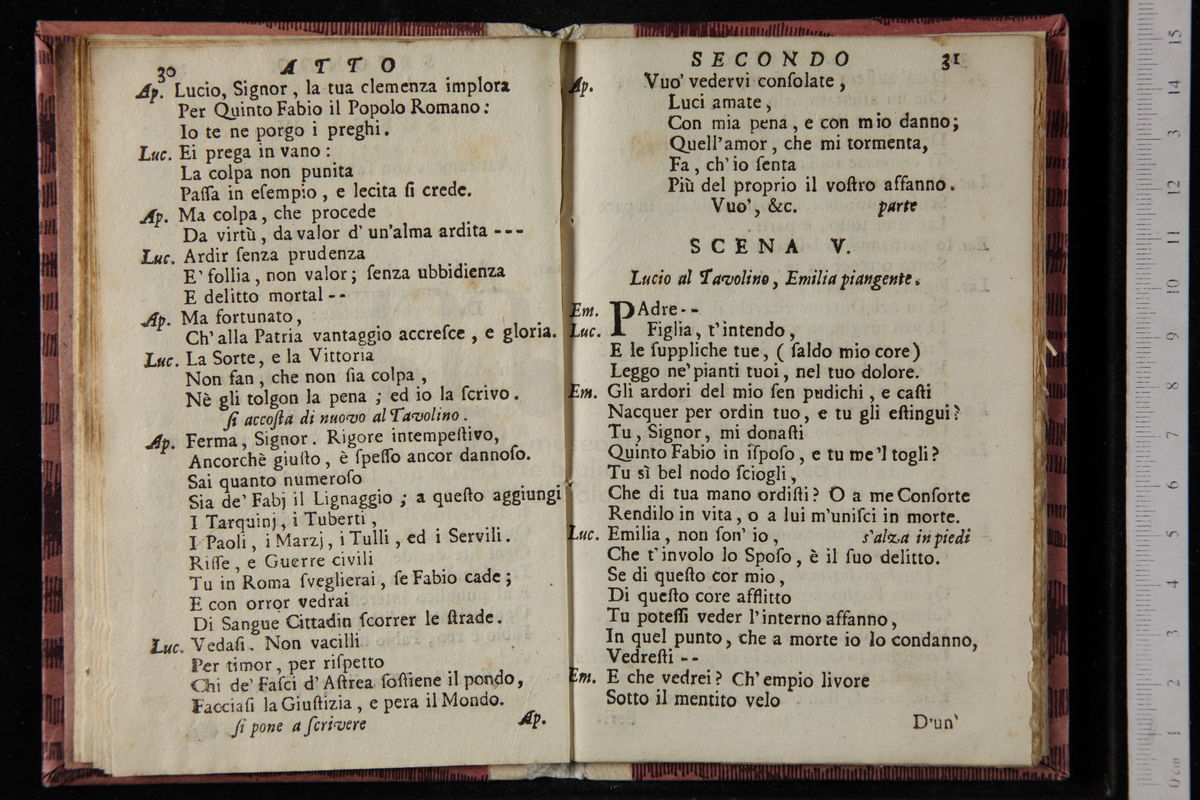 30 ATTO
Ap. Lucio, Signor, la tua clemenza implora
Per Quinto Fabio il Popolo Romano:
Io te ne porgo i preghi.
Luc. Ei prega in vano:
La colpa non punita
Paſſa in eſempio, e lecita ſi crede.
Ap. Ma colpa, che procede
Da virtù, da valor d'un'alma ardita ---
Luc. Ardir ſenza prudenza
E' follia, non valor; ſenza ubbidienza
E delitto mortal --
Ap. Ma fortunato,
Ch'alla Patria vantaggio accreſce, e gloria.
Luc. La Sorte, e la Vittoria
Non fan, che non ſia colpa,
Nè gli tolgon la pena; ed io la ſcrivo.
ſi accoſta di nuovo al Tavolino.
Ap. Ferma, Signor. Rigore intempeſtivo,
Ancorchè giuſto, è ſpeſſo ancor dannoſo.
Sai quanto numeroſo
Sia de' Fabj il Lignaggio; a queſto aggiungi
I Tarquinj, i Tuberti,
I Paoli, i Marzj, i Tulli, ed i Servili.
Riſſe, e Guerre civili
Tu in Roma ſveglierai, ſe Fabio cade;
E con orror vedrai
Di Sangue Cittadin ſcorrer le ſtrade.
Luc. Vedaſi. Non vacilli
Per timor, per riſpetto
Chi de' Faſci d'Aſtrea ſoſtiene il pondo,
Facciaſi la Giuſtizia, e pera il Mondo.
ſi pone a ſcrivere Ap.
SECONDO 31
Ap. Vuo' vedervi conſolate,
Luci amate,
Con mia pena, e con mio danno;
Quell'amor, che mi tormenta,
Fa, ch'io ſenta
Più del proprio il voſtro affanno.
Vuo', &c. parte
SCENA V.
Lucio al Tavolino, Emilia piangente.
Em. PAdre--
Luc. Figlia, t'intendo,
E le ſuppliche tue, (ſaldo mio core)
Leggo ne' pianti tuoi, nel tuo dolore.
Em. Gli ardori del mio ſen pudichi, e caſti
Nacquer per ordin tuo, e tu gli eſtingui?
Tu, Signor, mi donaſti
Quinto Fabio in iſpoſo, e tu me'l togli?
Tu sì bel nodo ſciogli,
Che di tua mano ordiſti? O a me Conſorte
Rendilo in vita, o a lui m'uniſci in morte.
Luc. Emilia, non ſon' io, s'alza in piedi
Che t'involo lo Spoſo, è il ſuo delitto.
Se di queſto cor mio,
Di queſto core afflitto
Tu poteſſi veder l'interno affanno,
In quel punto, che a morte io lo condanno,
Vedreſti --
Em. E che vedrei? Ch'empio livore
Sotto il mentito velo
D'un'